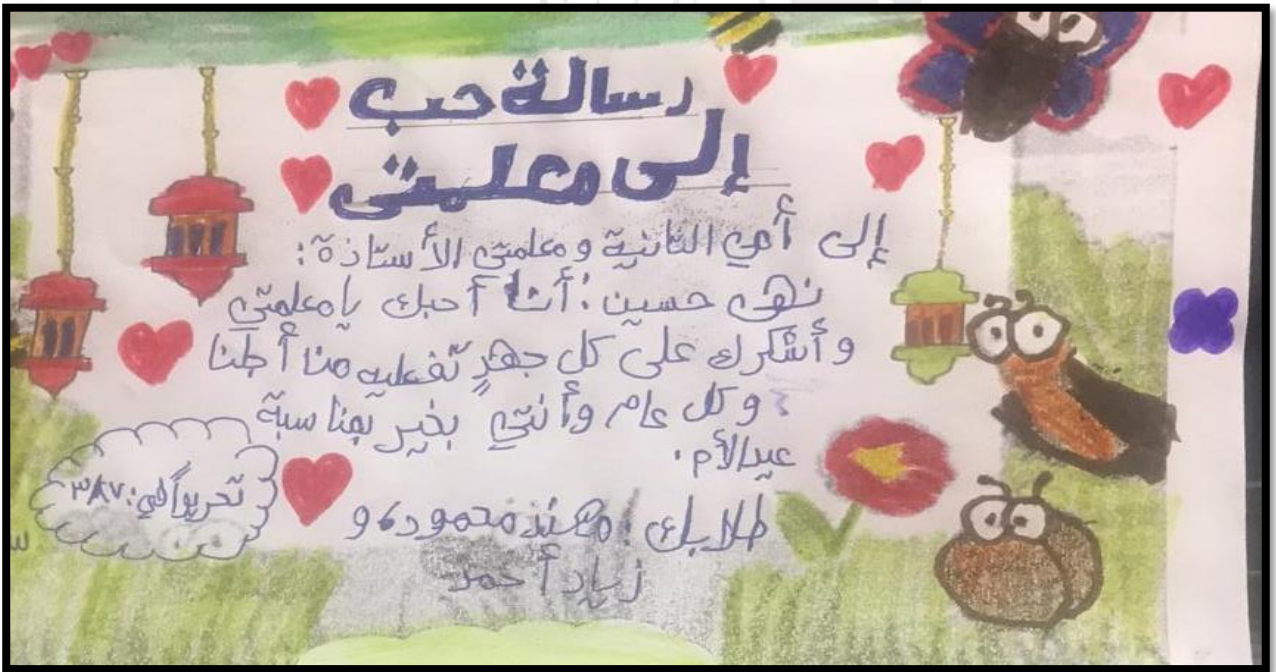 رسالة حب
إلى معلمتى
إلى أمي الثانية ومعلمتي الأستاذة:
نهى حسين: أنا أحبك يا معلمتي
وأشكرك على كل جهدٍ تفعليه من أجلنا
وكل عام وأنتي بخير بمناسبة
عيد الأم.
طلابك: مهند محمود، و
زياد أحمد
تحريراً في: